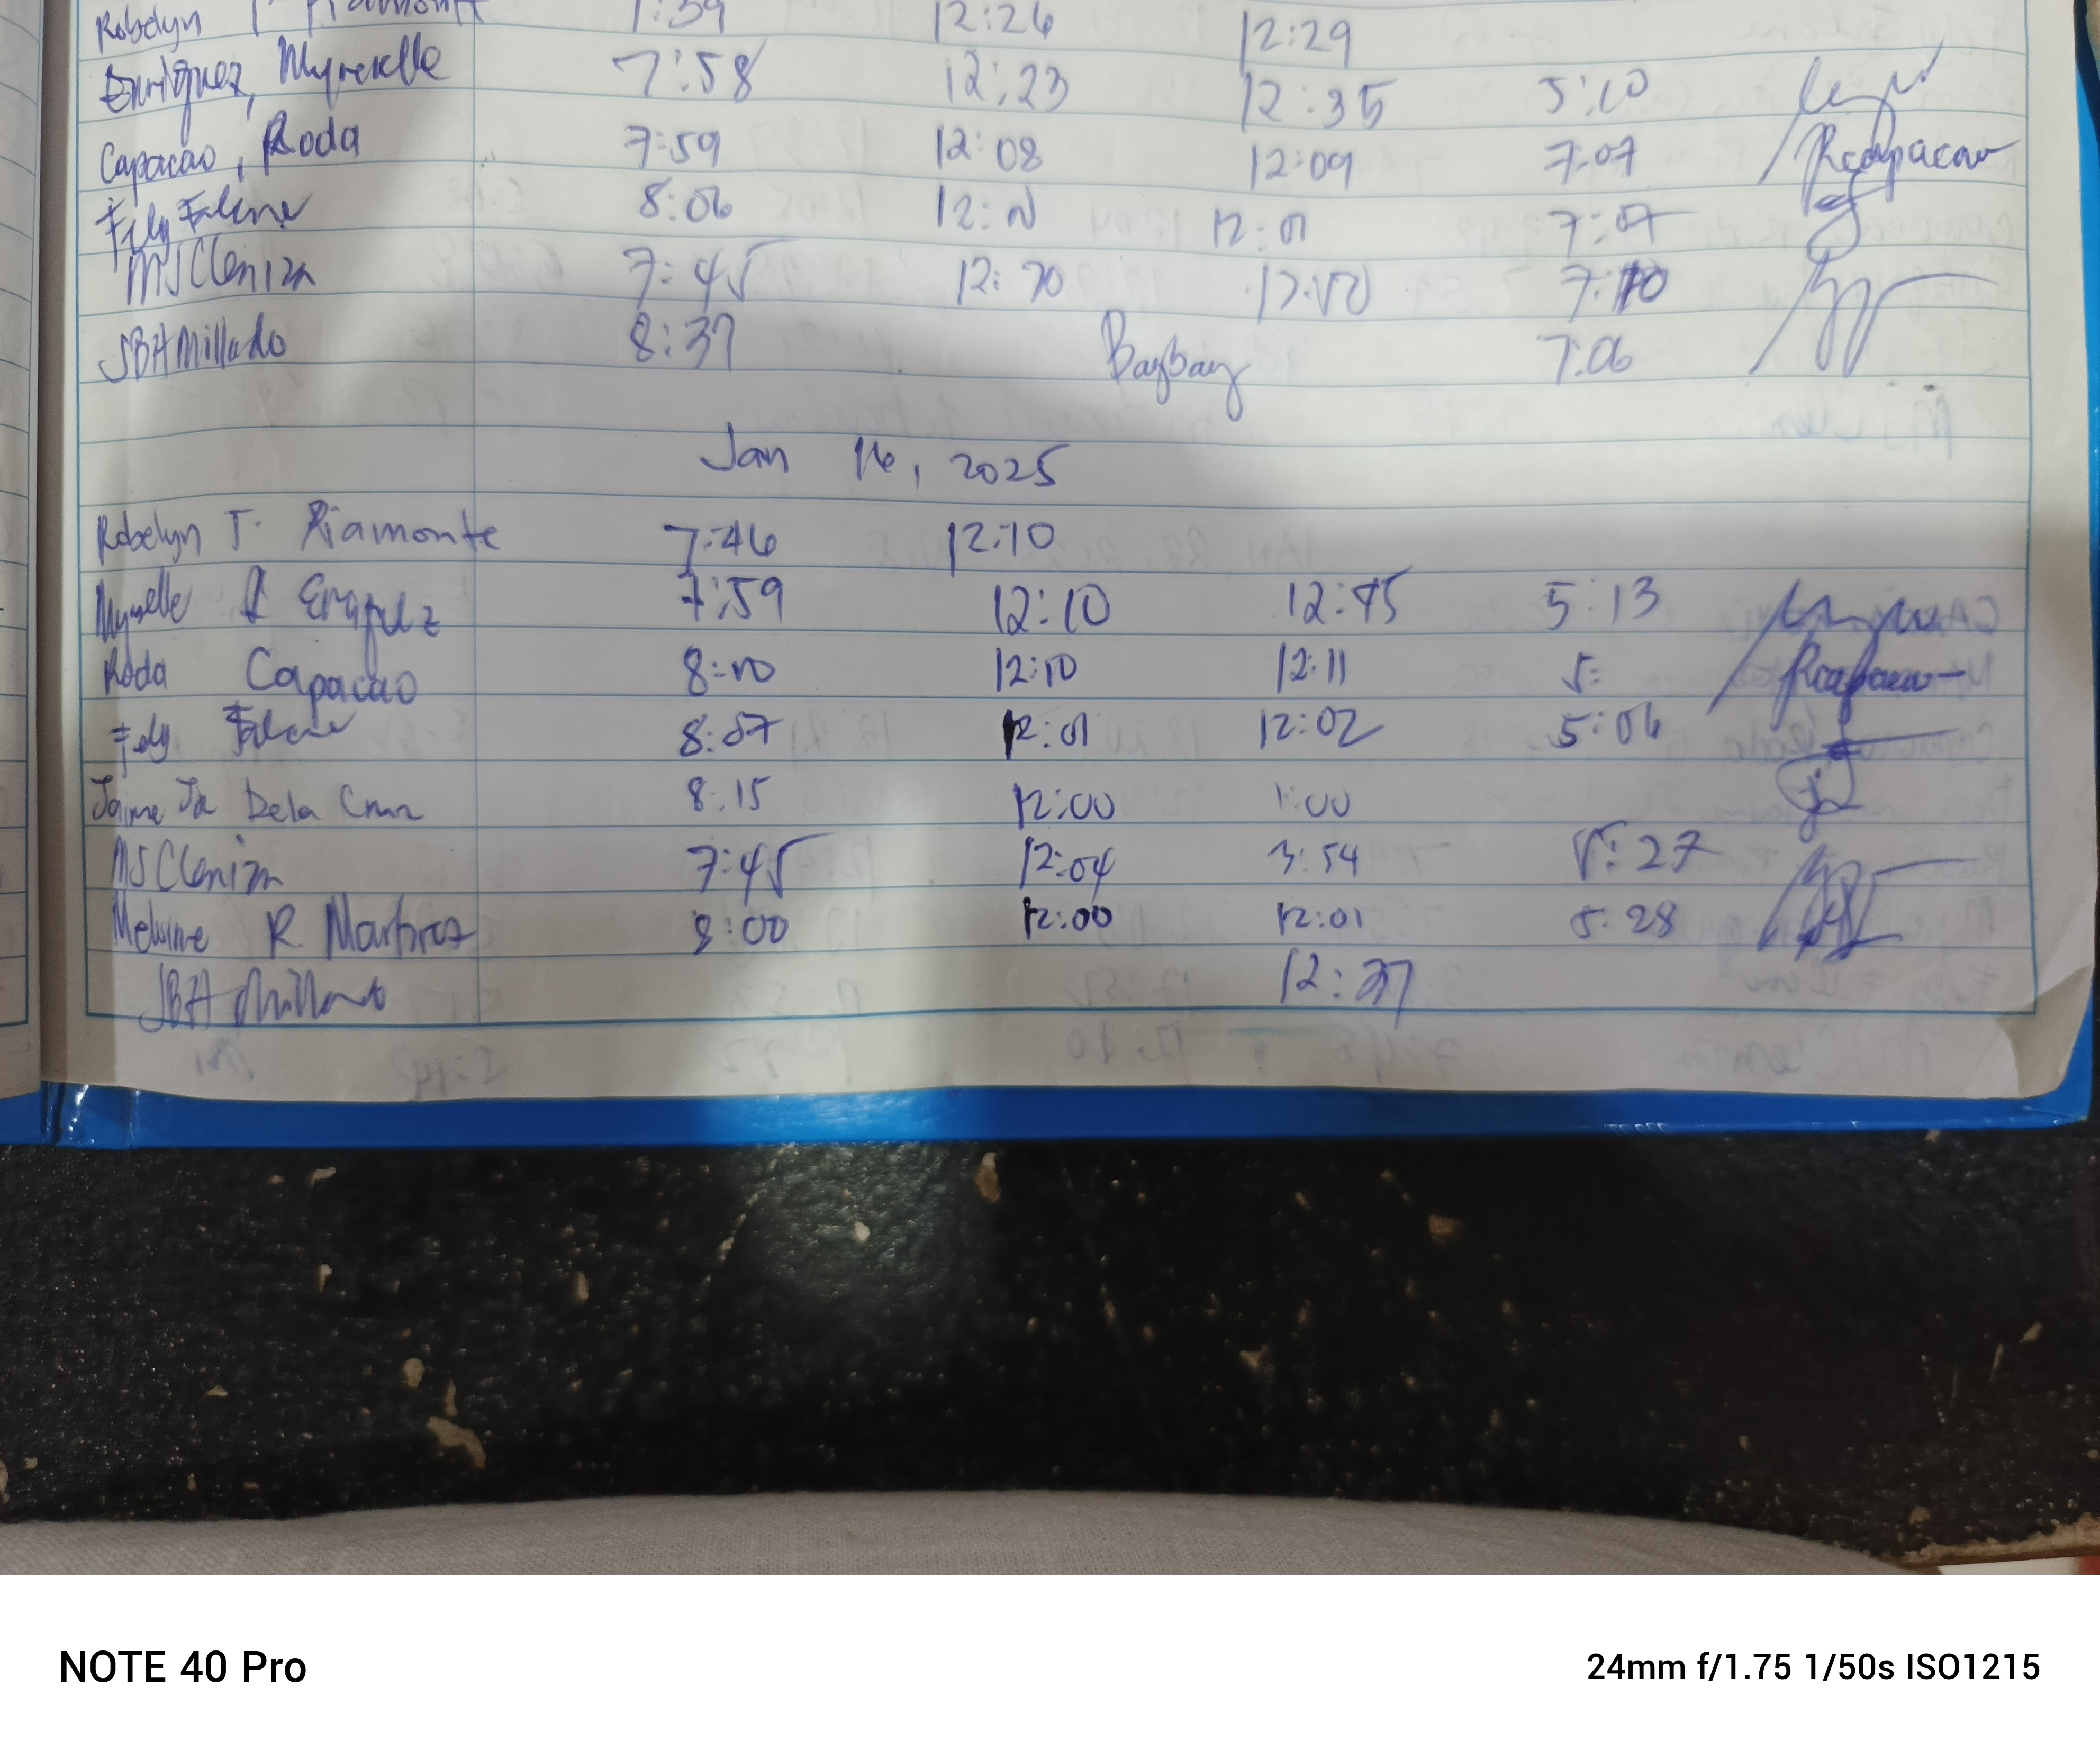 Robelyn T. Riamonte 7:39 12:26 12:29
Enriquez, Myrezelle 7:58 12:23 12:35 5:10
Capacao, Roda 7:59 12:08 12:09 7:07 Rcapacao
Fely 8:06 12:01 12:01 7:07
MSCleniza 7:45 7:10
JBAMillado 8:37 Baybay 7:06
Jan 16, 2025
Robelyn T. Riamonte 7:46 12:10
7:59 12:10 12:45 5:13
Roda Capacao 8:00 12:10 12:11 5: Rcapacao
Fely 8:07 12:01 12:02 5:06
Jaime Jr Dela Cruz 8:15 12:00 1:00
MSCleniza 7:45 12:04 3:54 5:27
Melvine R. 8:00 12:00 12:01 5:28
JBA Millado 12:37
NOTE 40 Pro
24mm f/1.75 1/50s ISO1215